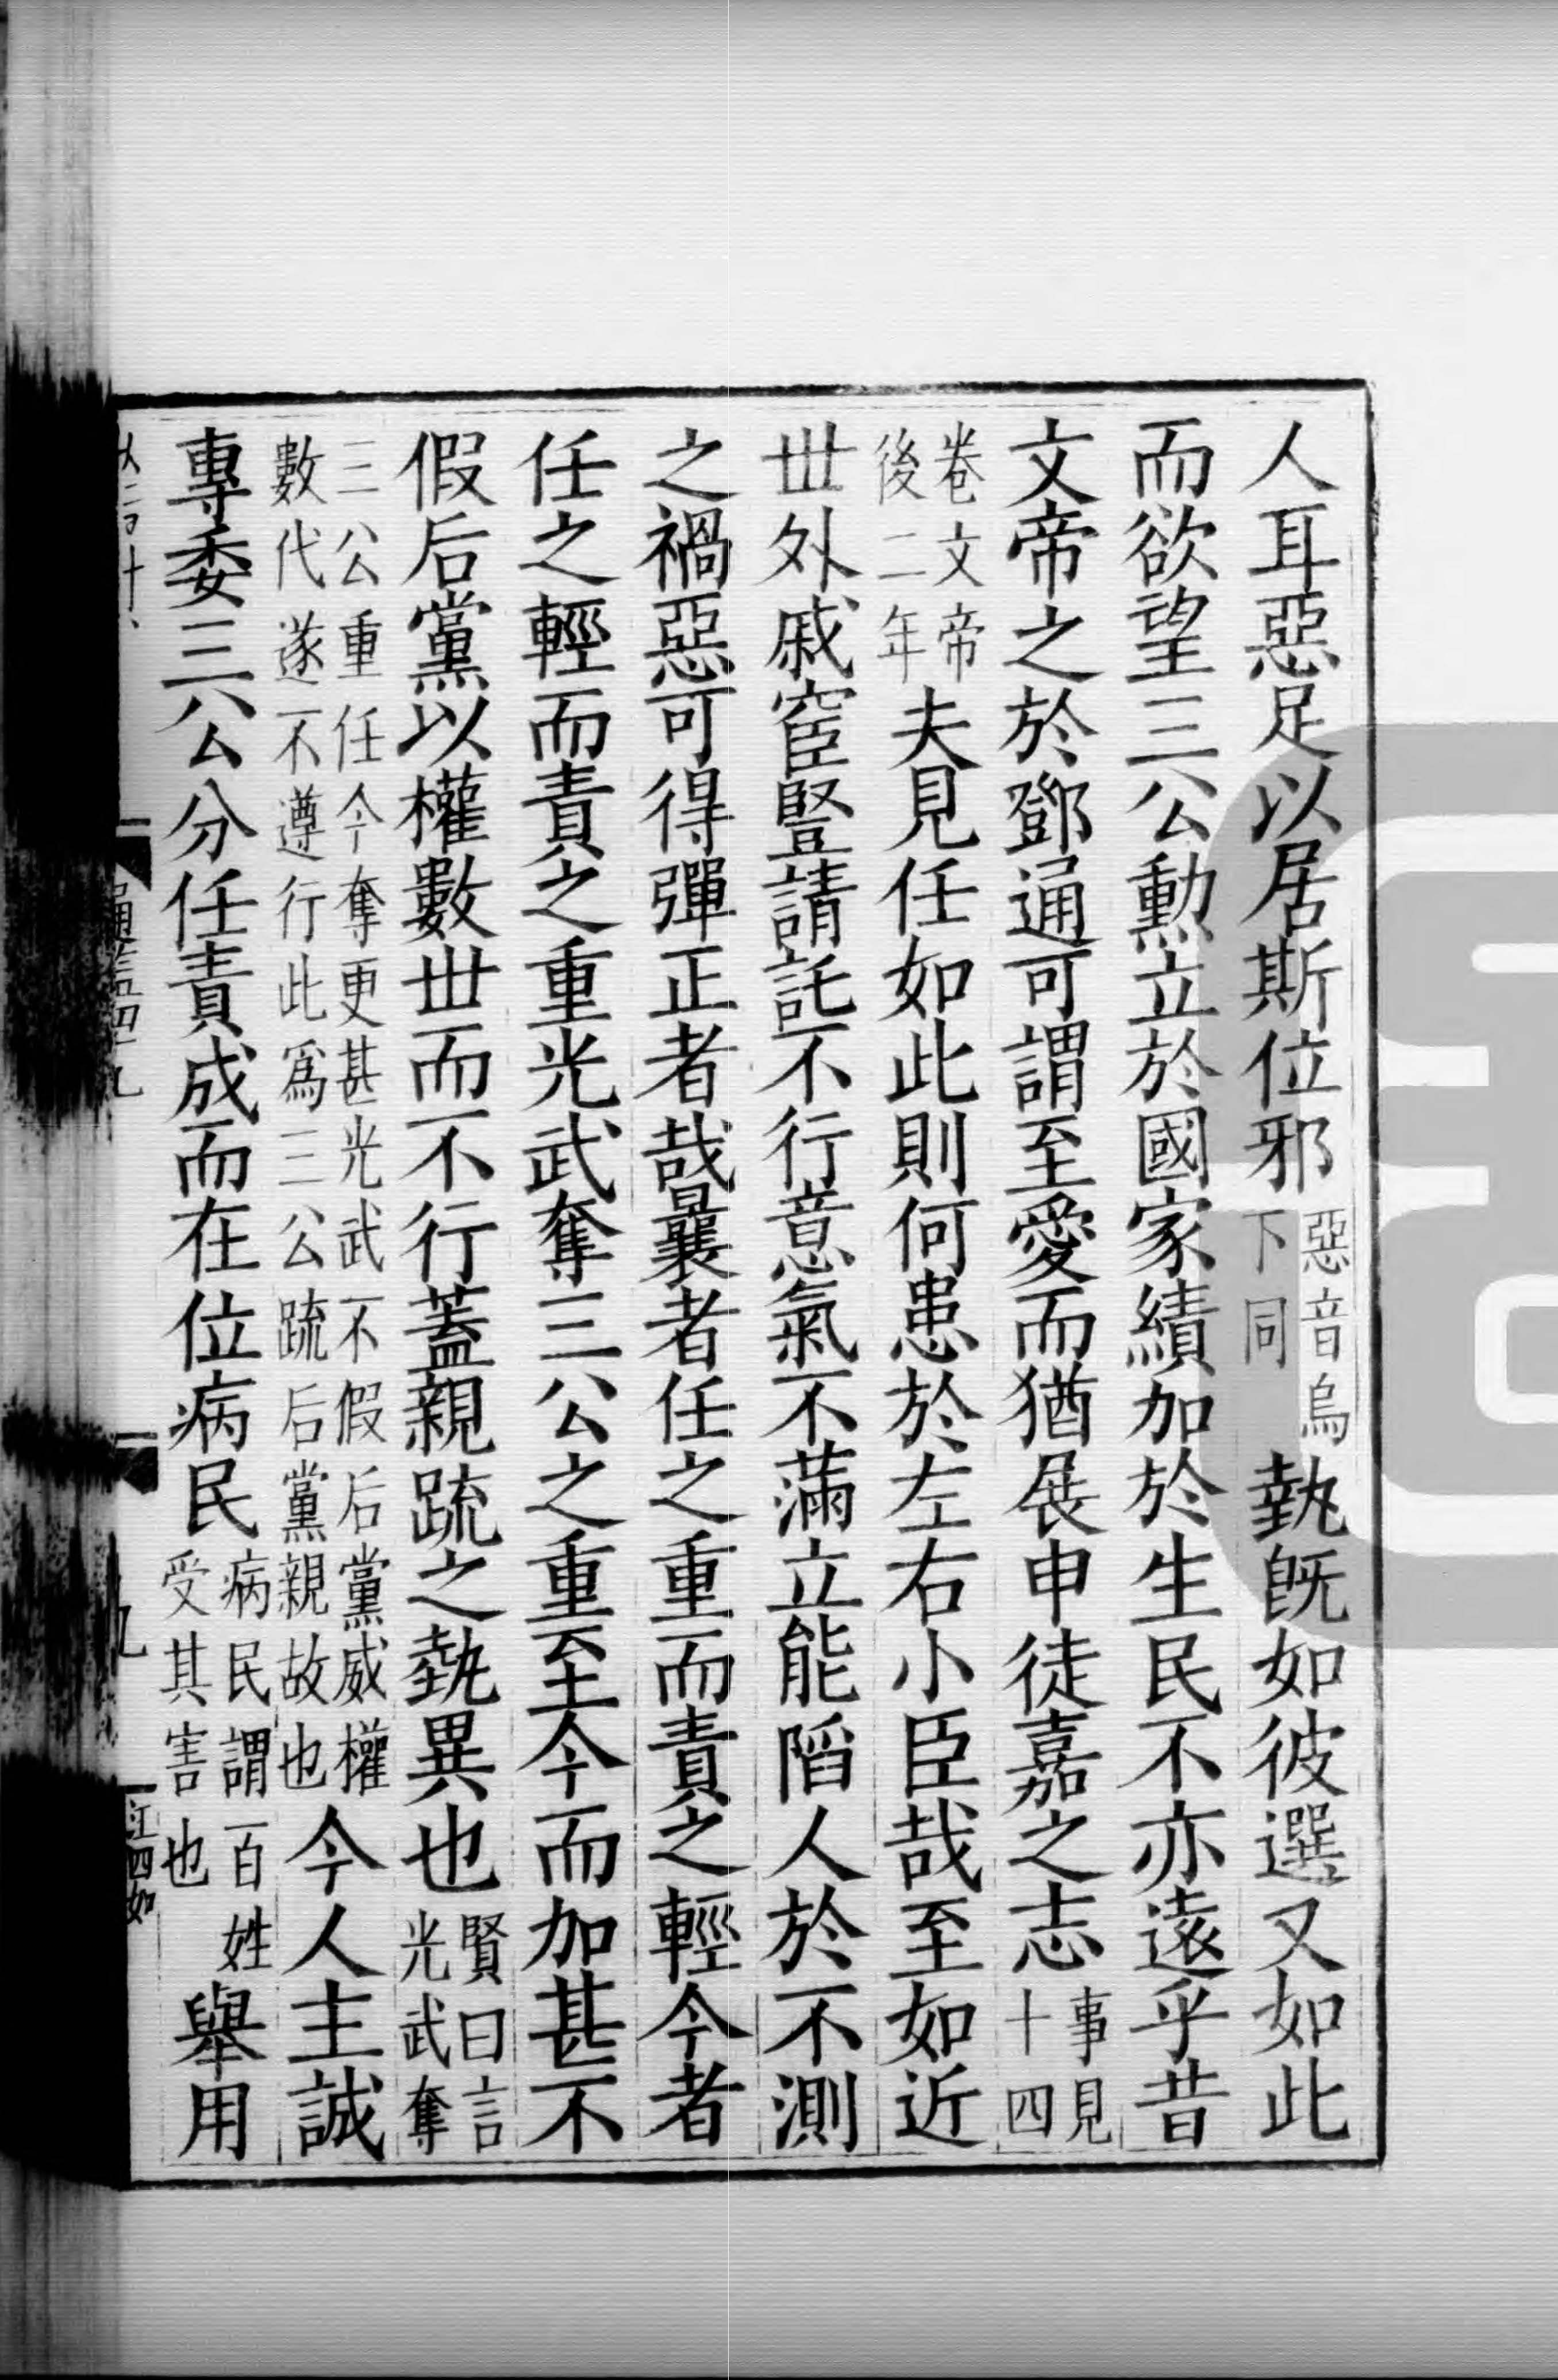 人耳惡足以居斯位邪惡音烏下同埶旣如彼選又如此
而欲望三公勳立於國家績加於生民不亦遠乎昔
文帝之於鄧通可謂至愛而猶展申徒嘉之志事見十四
卷文帝後二年夫見任如此則何患於左右小臣哉至如近
丗外戚宦豎請託不行意氣不滿立能陷人於不測
之禍惡可得彈正者哉曩者任之重而責之輕今者
任之輕而責之重光武奪三公之重至今而加甚不
假后黨以權數丗而不行蓋親疏之埶異也賢曰言光武奪
三公重任今奪更甚光武不假后黨威權數代遂不遵行此爲三公疏后黨親故也今人主誠
專委三公分任責成而在位病民病民謂百姓受其害也舉用
江四如